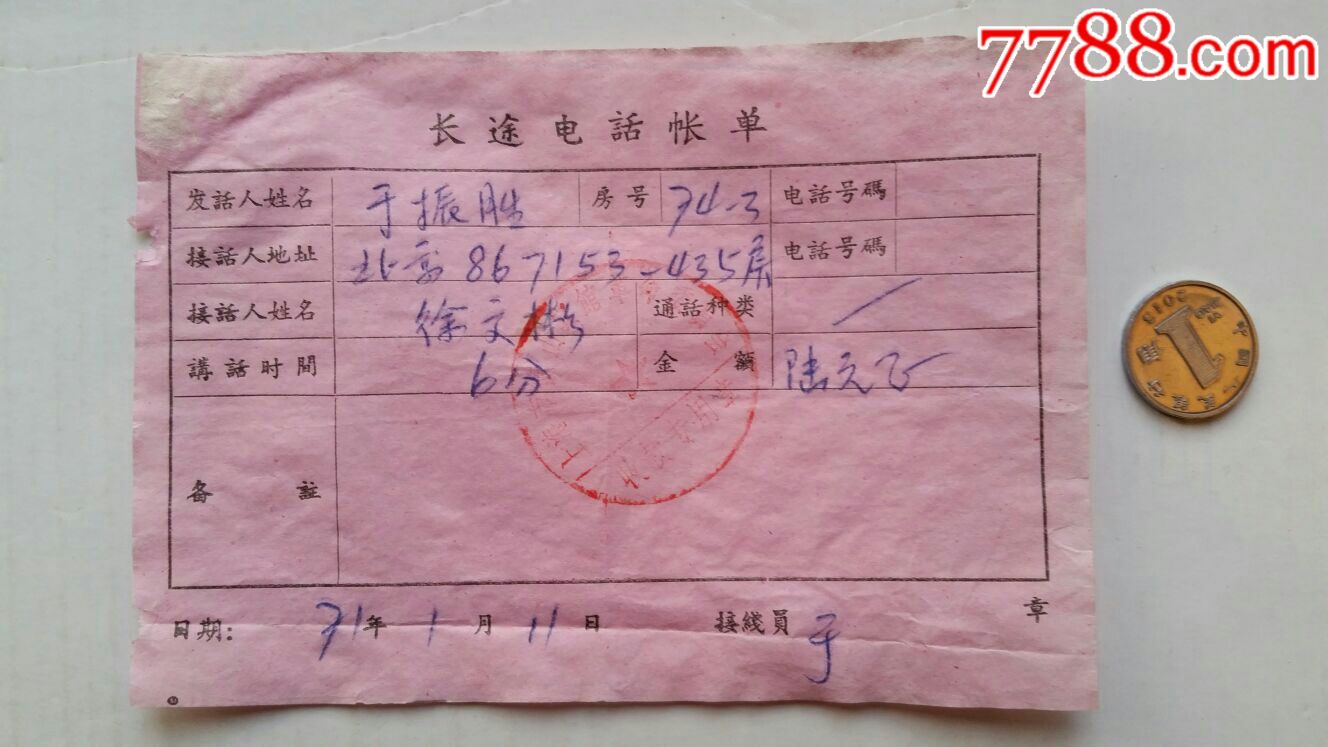 7788.com
长途电話帐单
发話人姓名 于振胜 房号 74-3 电話号碼
接話人地址 北京 867153-435房 电話号碼
接話人姓名 徐文彬 通話种类
講話时間 6分 金額 陆元正
收费专用章
备註
章
日期: 71年 1月 11日 接綫員 于
2013
1